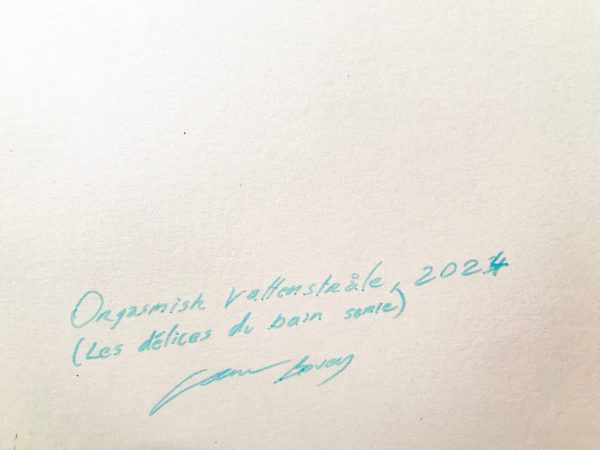 Orgasmish vattenstråle, 2024
(Les délices du bain